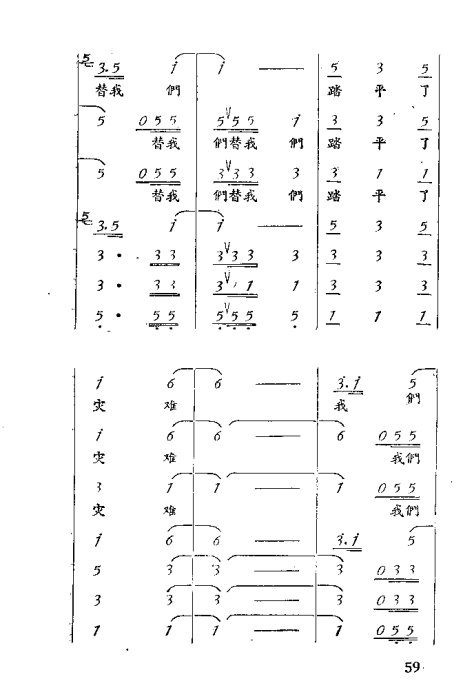 5 3.5 i i — 5 3 5
替我 們 踏 平 了
5 0 5 5 5 V 5 5 i 3 3 5
替我 們替我 們 踏 平 了
5 0 5 5 3 V 3 3 3 3 1 1
替我 們替我 們 踏 平 了
5 3.5 i i — 5 3 5
3 · 3 3 3 V 3 3 3 3 3 3
3 · 3 3 3 V 1 1 3 3 3
5 · 5 5 5 V 5 5 5 1 1 1
i 6 6 — 3.i 5
灾 难 我 們
i 6 6 — 6 0 5 5
灾 难 我們
3 1 1 — 1 0 5 5
灾 难 我們
i 6 6 — 3.i 5
5 3 3 — 3 0 3 3
3 3 3 — 3 0 3 3
1 1 1 — 1 0 5 5
59